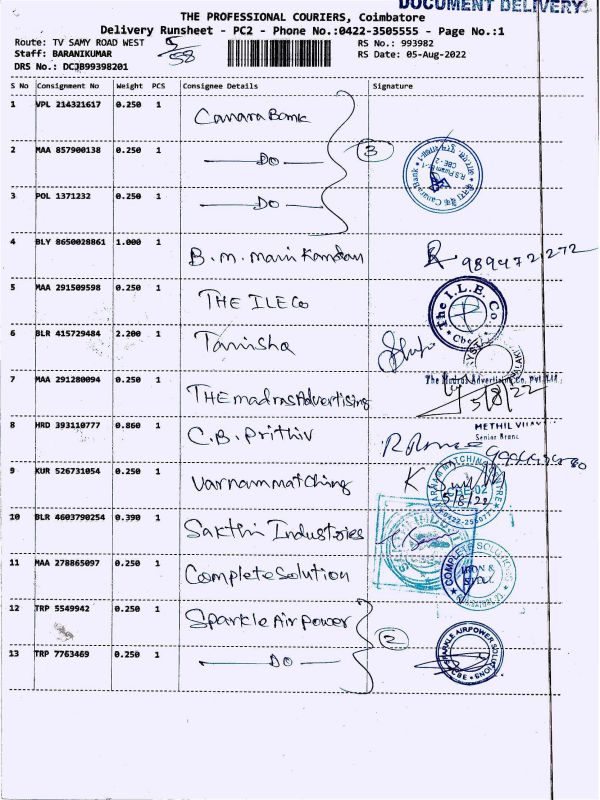 DOCUMENT DELIVERY
THE PROFESSIONAL COURIERS, Coimbatore
Delivery Runsheet - PC2 - Phone No.:0422-3505555 - Page No.:1
Route: TV SAMY ROAD WEST
RS No.: 993982
Staff: BARANIKUMAR
RS Date: 05-Aug-2022
DRS No.: DCJB99398201
S No Consignment No Weight PCS Consignee Details Signature
1 VPL 214321617 0.250 1 Canara Bank
2 MAA 857900138 0.250 1 — DO — 3
3 POL 1371232 0.250 1 — DO —
4 BLY 8650028861 1.000 1 B.M. Mani Kandan
5 MAA 291509598 0.250 1 THE ILE Co
The I.L.E. Co.
6 BLR 415729484 2.200 1 Tanisha
The Madras Advertising Co. Pvt. Ltd.
7 MAA 291280094 0.250 1 THE madras Advertising
5/8/22
8 HRD 393110777 0.860 1 C.B. Prithiv
9 KUR 526731054 0.250 1 Varnam matching
VARNAM MATCHING CENTRE
10 BLR 4603790254 0.390 1 Sakthi Industries
11 MAA 278865097 0.250 1 Complete Solution
COMPLETE SOLUTIONS
12 TRP 5549942 0.250 1 Sparkle Air power
2
13 TRP 7763469 0.250 1 — DO —
SPARKLE AIRPOWER SOLUTIONS
CBE